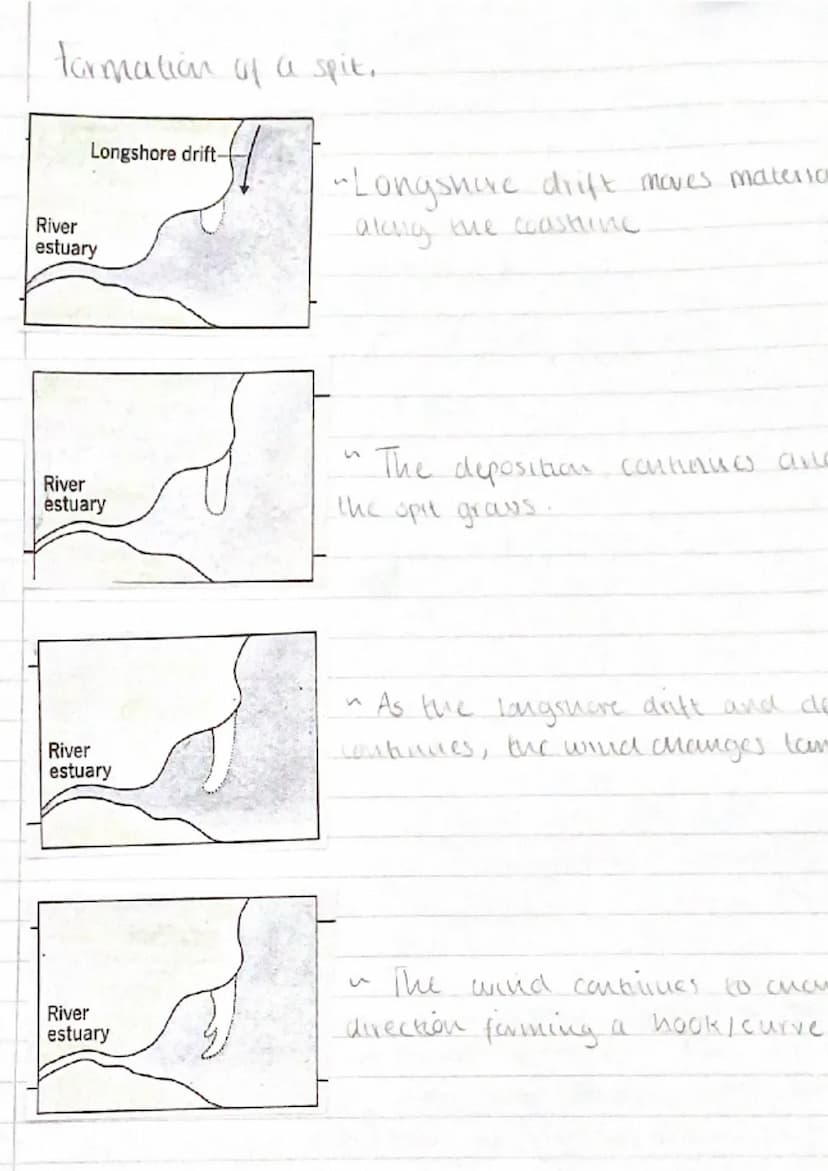 formation of a spit.
Longshore drift
River
estuary
~Longshore drift moves materia
along the coastline
River
estuary
~ The deposition continues and
the spit grows.
River
estuary
~ As the longshore drift and de
continues, the wind changes
River
estuary
~ The wind continues to
direction forming a hook/curve